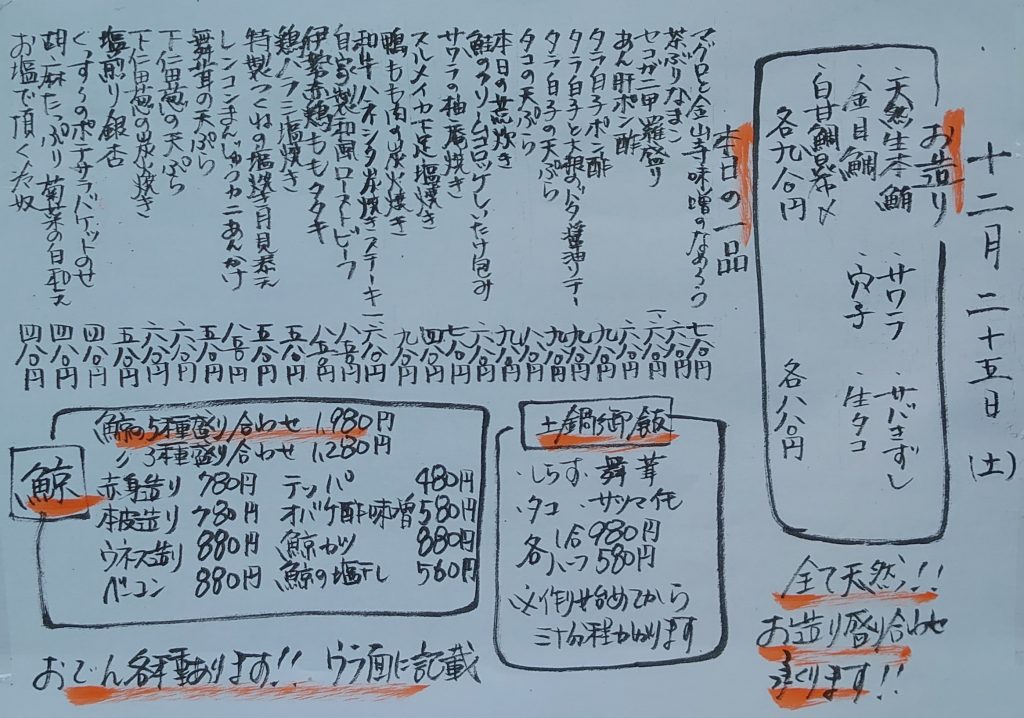 十二月二十五日(土)
お造り
・天然生本鮪 ・サワラ ・サバきずし
・金目鯛 ・穴子 ・生タコ
・白甘鯛昆布〆
各九八〇円 各八八〇円
全て天然!!
お造り盛り合わせ
承ります!!
本日の一品
マグロと金山寺味噌のなめろう 七八〇円
茶ぶりなまこ 六八〇円
セコガニ甲羅盛り
あん肝ポン酢 六八〇円
タラ白子ポン酢 九八〇円
タラ白子と大根バター醤油ソテー 九八〇円
タラ白子の天ぷら 九八〇円
タコの天ぷら 八八〇円
本日の煮炊き 九八〇円
鮭のクリームコロッケしいたけ包み 六八〇円
サワラの柚庵焼き 七八〇円
スルメイカ下足塩焼き 四八〇円
鴨もも肉の炭火焼き 九八〇円
和牛ハネシタ炭焼きステーキ 一六八〇円
自家製和風ローストビーフ 八八〇円
伊勢赤鶏ももタタキ 八八〇円
鶏ハラミ塩焼き 五八〇円
特製つくねの塩焼き月見添え 五八〇円
レンコンまんじゅうカニあんかけ 八八〇円
舞茸の天ぷら 五八〇円
下仁田葱の天ぷら 六八〇円
下仁田葱の炭火焼き 六八〇円
塩煎り銀杏 五八〇円
くっすぅのポテサラバケットのせ 四八〇円
胡麻たっぷり菊菜の白和え 四八〇円
お塩で頂くた奴 四八〇円
土鍋御飯
・しらす ・舞茸
・タコ ・サツマイモ
各 一合 980円
ハーフ 580円
※作り始めてから
三十分程かかります
鯨
鯨の5種盛り合わせ 1,980円
〃 3種盛り合わせ 1,280円
赤身造り 780円 テッパ 480円
本皮造り 780円 オバケ酢味噌 580円
ウネス造り 880円 鯨カツ 880円
ベーコン 880円 鯨の塩干し 560円
おでん各種あります!! ウラ面に記載